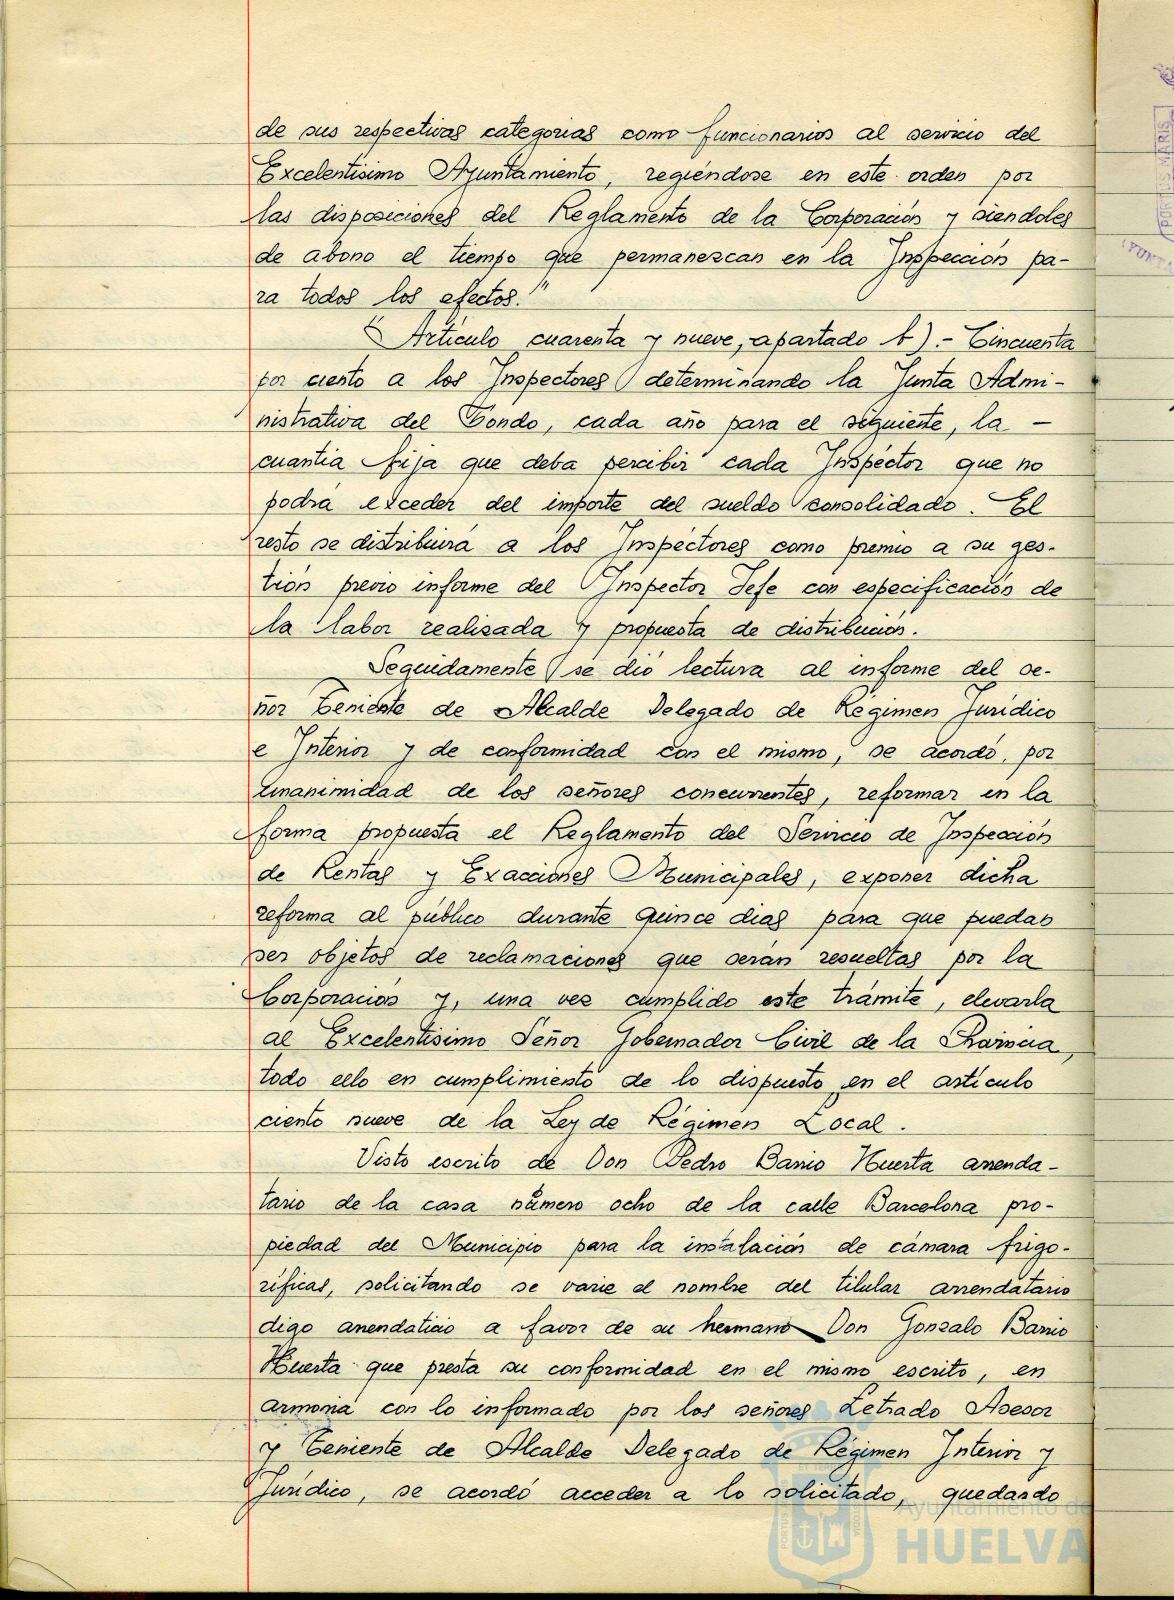 de sus respectivas categorias como funcionarios al servicio del
Excelentisimo Ayuntamiento, regiéndose en este orden por
las disposiciones del Reglamento de la Corporación y siendoles
de abono el tiempo que permanezcan en la Inspección pa-
ra todos los efectos."
"Artículo cuarenta y nueve, apartado b).- Cincuenta
por ciento a los Inspectores determinando la Junta Admi-
nistrativa del Fondo, cada año para el siguiente, la -
cuantia fija que deba percibir cada Inspector que no
podrá exceder del importe del sueldo consolidado. El
resto se distribuirá a los Inspectores como premio a su ges-
tión previo informe del Inspector Jefe con especificación de
la labor realizada y propuesta de distribución.
Seguidamente se dió lectura al informe del se-
ñor Teniente de Alcalde Delegado de Régimen Jurídico
e Interior y de conformidad con el mismo, se acordó, por
unanimidad de los señores concurrentes, reformar en la
forma propuesta el Reglamento del Servicio de Inspección
de Rentas y Exacciones Municipales, exponer dicha
reforma al público durante quince dias para que puedan
ser objetos de reclamaciones que serán resueltas por la
Corporación y, una vez cumplido este trámite, elevarla
al Excelentisimo Señor Gobernador Civil de la Provincia,
todo ello en cumplimiento de lo dispuesto en el artículo
ciento nueve de la Ley de Régimen Local.
Visto escrito de Don Pedro Barrio Huerta arrenda-
tario de la casa número ocho de la calle Barcelona pro-
piedad del Municipio para la instalación de cámara frigo-
ríficas, solicitando se varie el nombre del titular arrendatario
digo arrendaticio a favor de su hermano Don Gonzalo Barrio
Huerta que presta su conformidad en el mismo escrito, en
armonía con lo informado por los señores Letrado Asesor
y Teniente de Alcalde Delegado de Régimen Interior y
Jurídico, se acordó acceder a lo solicitado, quedando
Ayuntamiento de
HUELVA